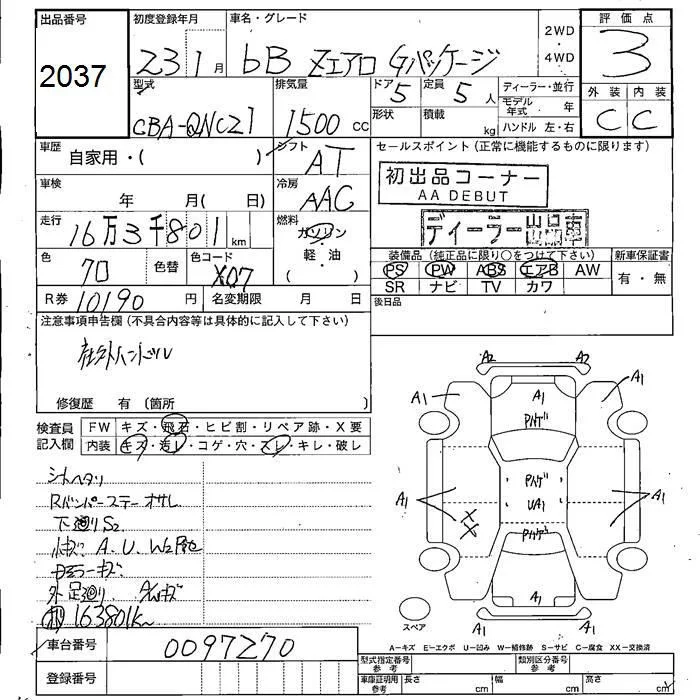 出品番号 初度登録年月 車名・グレード 評価点
2037 23 1月 bB Zエアロ Gパッケージ 2WD・4WD 3
型式 排気量 ドア 定員 ディーラー・並行 外装 内装
CBA-QNC21 1500 cc 5 5人 モデル年式 年 C C
形状 積載 kg ハンドル 左・右
車歴 自家用・( ) シフト AT セールスポイント(正常に機能するものに限ります)
車検 年 月( 日) 冷房 AAC 初出品コーナー
AA DEBUT
走行 16万3千801km 燃料 ガソリン・軽・油 ( ) ディーラー出品車
色 70 色替 色コード X07 装備品(純正品に限り○をつけて下さい) 新車保証書
PS PW ABS エアB AW 有・無
R券 10190円 名変期限 月 日 SR ナビ TV カワ
注意事項申告欄(不具合内容等は具体的に記入して下さい) 後日品
社外ハンドル
修復歴 有(箇所 )
検査員 FW キズ・飛石・ヒビ割・リペア跡・X要
記入欄 内装 キズ・汚レ・コゲ・穴・スレ・キレ・破レ
シートヘタリ
Rバンパーステーオサレ
下廻りS2
小キズ A.U.W2
ミラーキズ
外 足廻り
163801k
A2 A2
A1 A1 A1
Pハゲ
Pハゲ
A1 UA1 A1
XX Pハゲ
A1
A1
スペア
A−キズ E−エクボ U−凹み W−補修跡 S−サビ C−腐食 XX−交換済
車台番号 0097270
型式指定番号 参考 類別区分番号 参考
登録番号 車庫証明用 参考 長さ cm 幅 cm 高さ cm